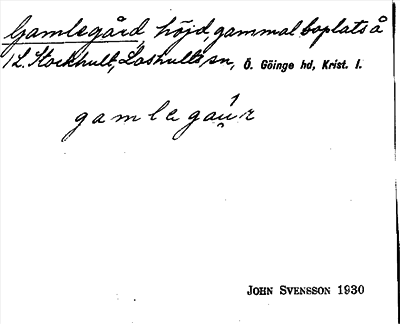 Gamlegård, höjd, gammal boplats å
L. Stockhult, Loshults sn, Ö. Göinge hd, Krist. l.
gamlegau̯r
JOHN SVENSSON 1930